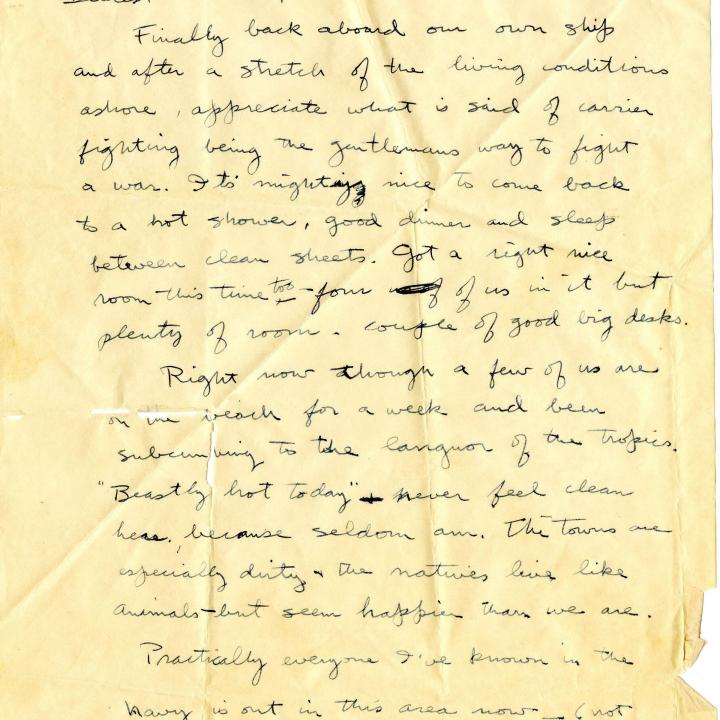 Dearest
Finally back aboard our own ship
and after a stretch of the living conditions
ashore, appreciate what is said of carrier
fighting being the gentlemans way to fight
a war. It's mighty nice to come back
to a hot shower, good dinner and sleep
between clean sheets. Got a right nice
room this time too - four of us in it but
plenty of room - couple of good big desks.
Right now though a few of us are
on the beach for a week and been
subcumbing to the languor of the tropics.
"Beastly hot today" - never feel clean
here, because seldom am. The towns are
especially dirty - the natives live like
animals - but seem happier than we are.
Practically everyone I've known in the
Navy is out in this area now - (not